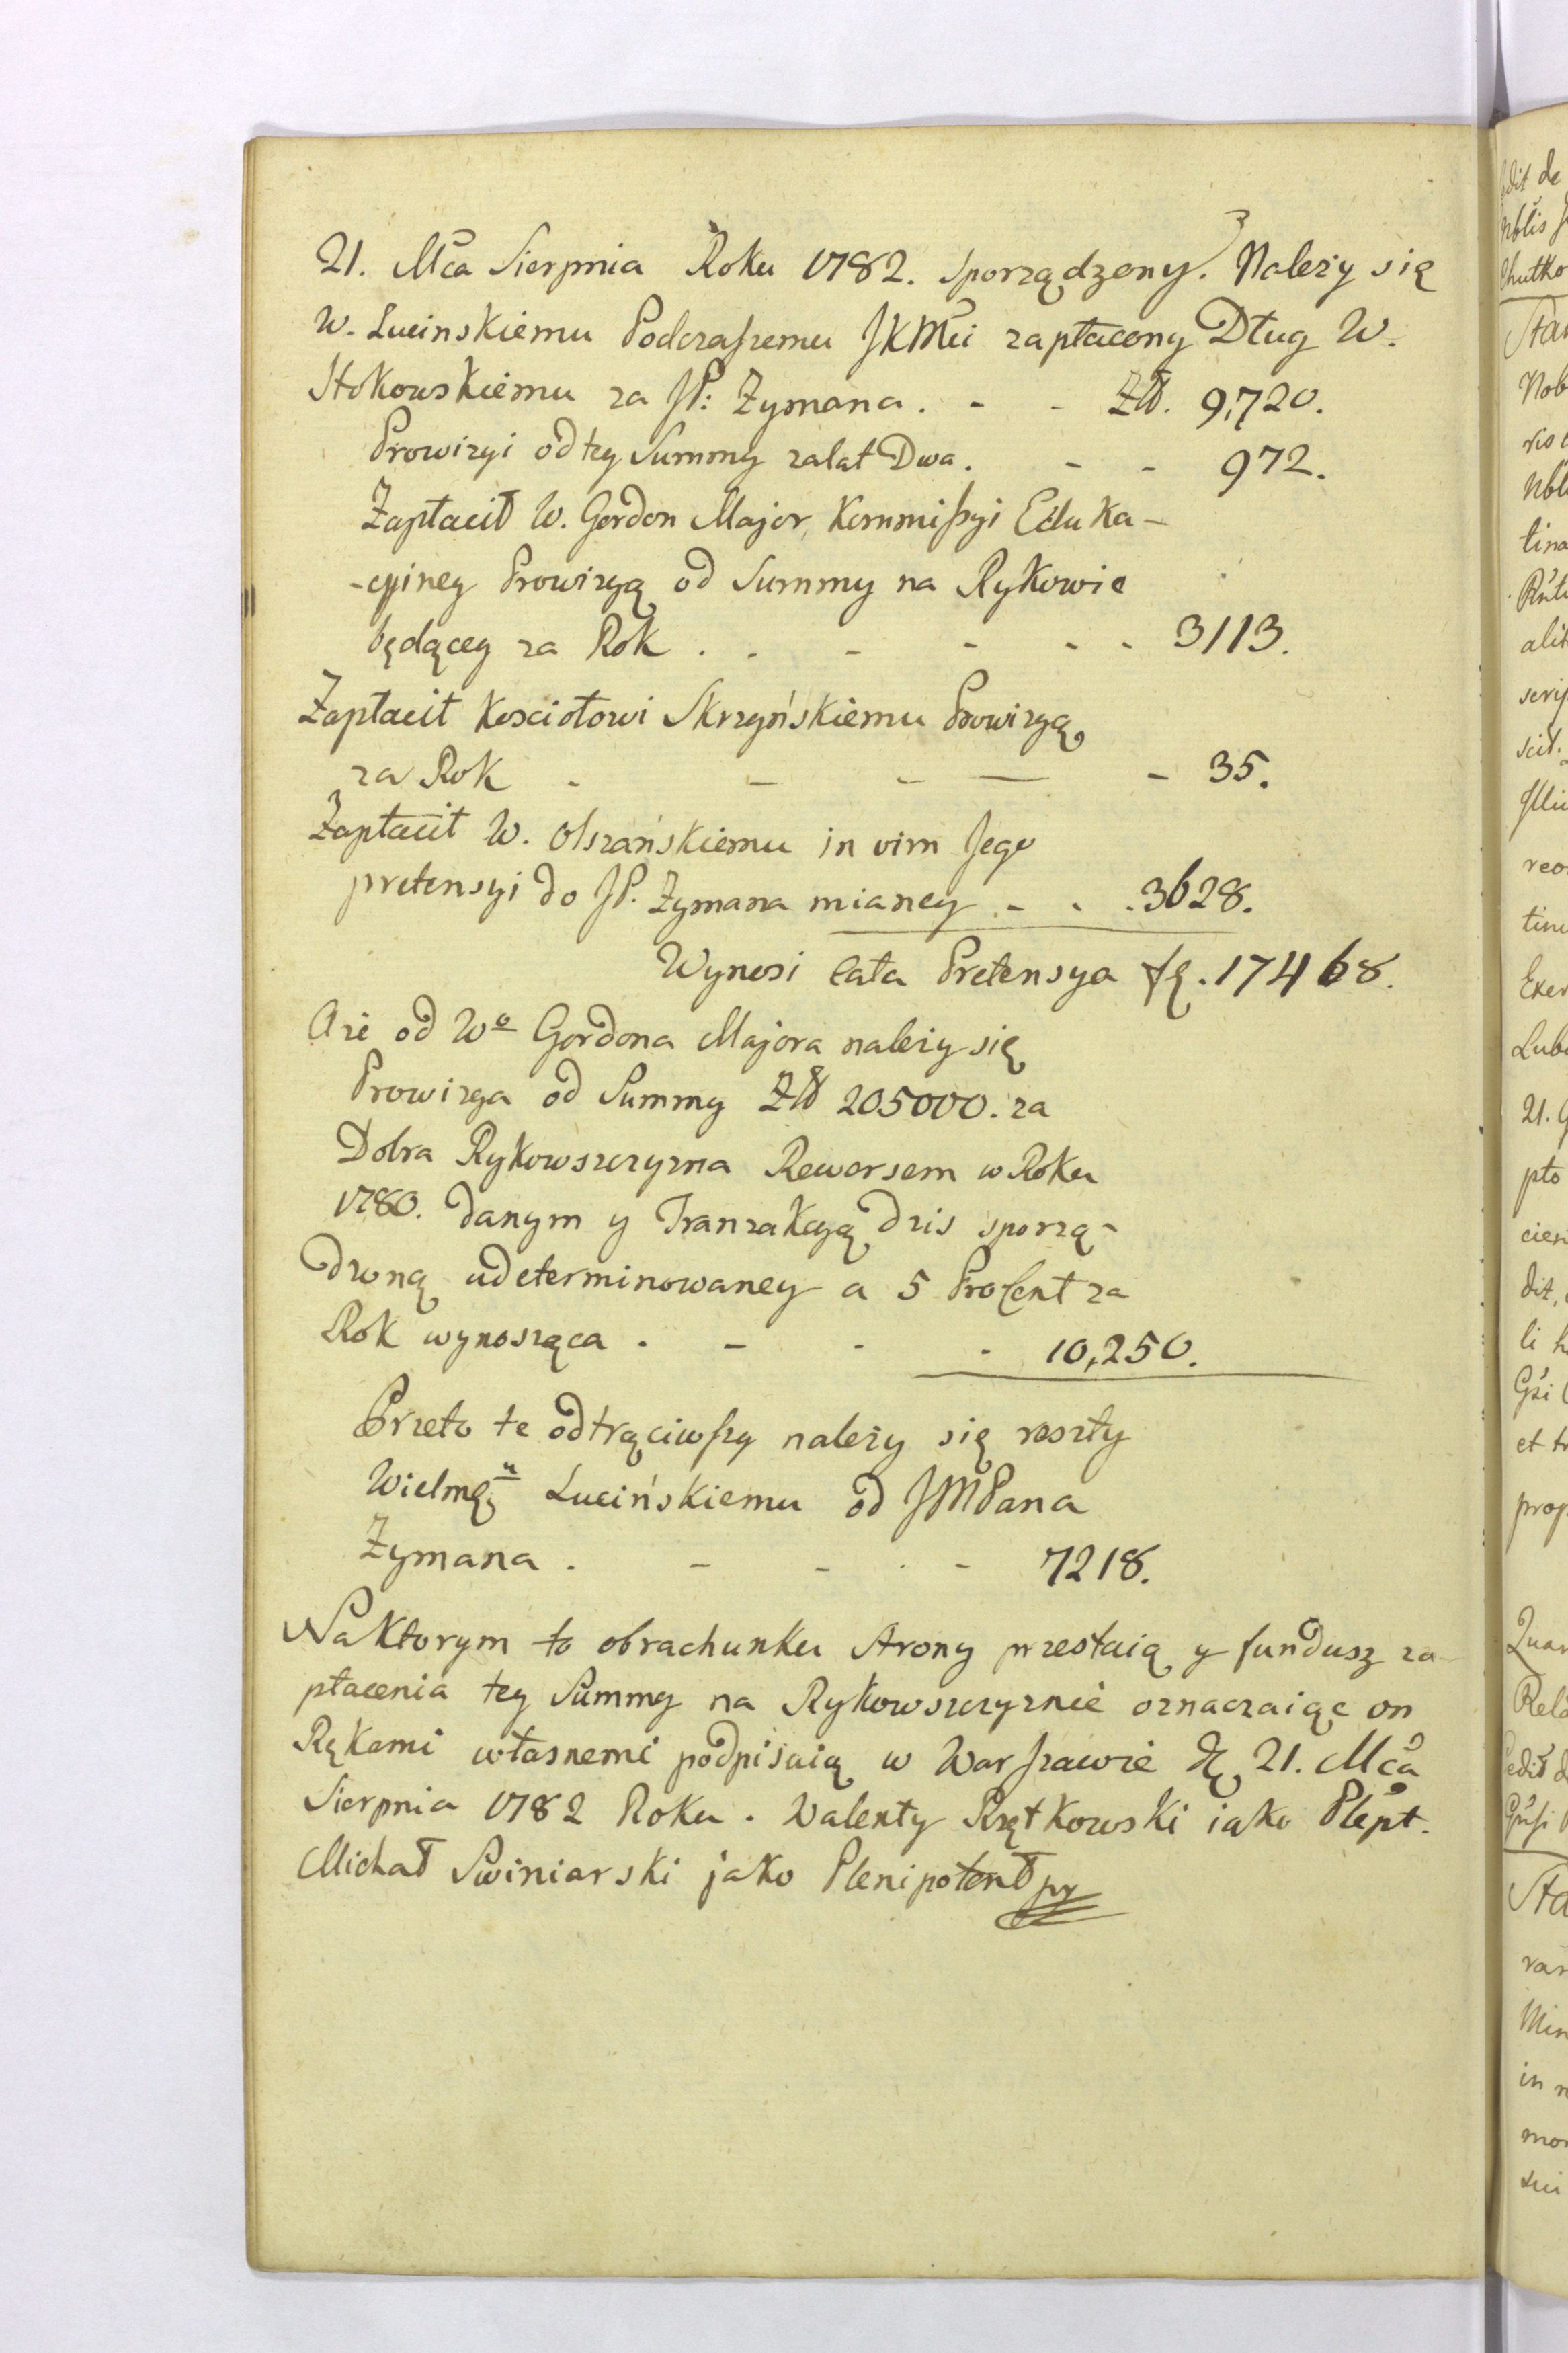 21. Mca Sierpnia Roku 1782. sporządzony. Należy się
W. Lucinskiemu Podczaszemu JKMci zapłacony Dług W.
Stokowskiemu za JP: Zymana. - - Złł. 9,720.
Prowizyi od tey Summy zalat Dwa. - - 972.
Zapłacił W. Gordon Major, Kommissyi Eduka-
-cyiney Prowizyą od Summy na Rykowie
będącey za Rok . - - - - - 3113.
Zapłacił Kosciołowi Skrzyńskiemu Prowizyą
za Rok - - - - - 35.
Zapłacił W. Olszańskiemu in vim Jego
pretensyi do JP. Zymana mianey - - . 3628.
Wynosi cała Pretensya fł. 17468.
A że od Wo Gordona Majora należy się
Prowizya od Summy Złł 205000. za
Dobra Rykowszczyzna Rewersem w Roku
1780. danym y Tranzakcyą dzis sporzą-
dzoną udeterminowaney a 5 ProCent za
Rok wynosząca . - - - 10,250.
Przeto te odtrąciwszy należy się reszty
Wielmu Lucińskiemu od JMPana
Zymana . - - - 7218.
Na Ktorym to obrachunku Strony przestaią y fundusz za-
płacenia tey Summy na Rykowszczyznie oznaczaiąc on
Rękami własnemi podpisuią w Warszawie d. 21. Mca
Sierpnia 1782 Roku. Walenty Rzętkowski iako Plept.
Michał Swiniarski jako Plenipotent pr